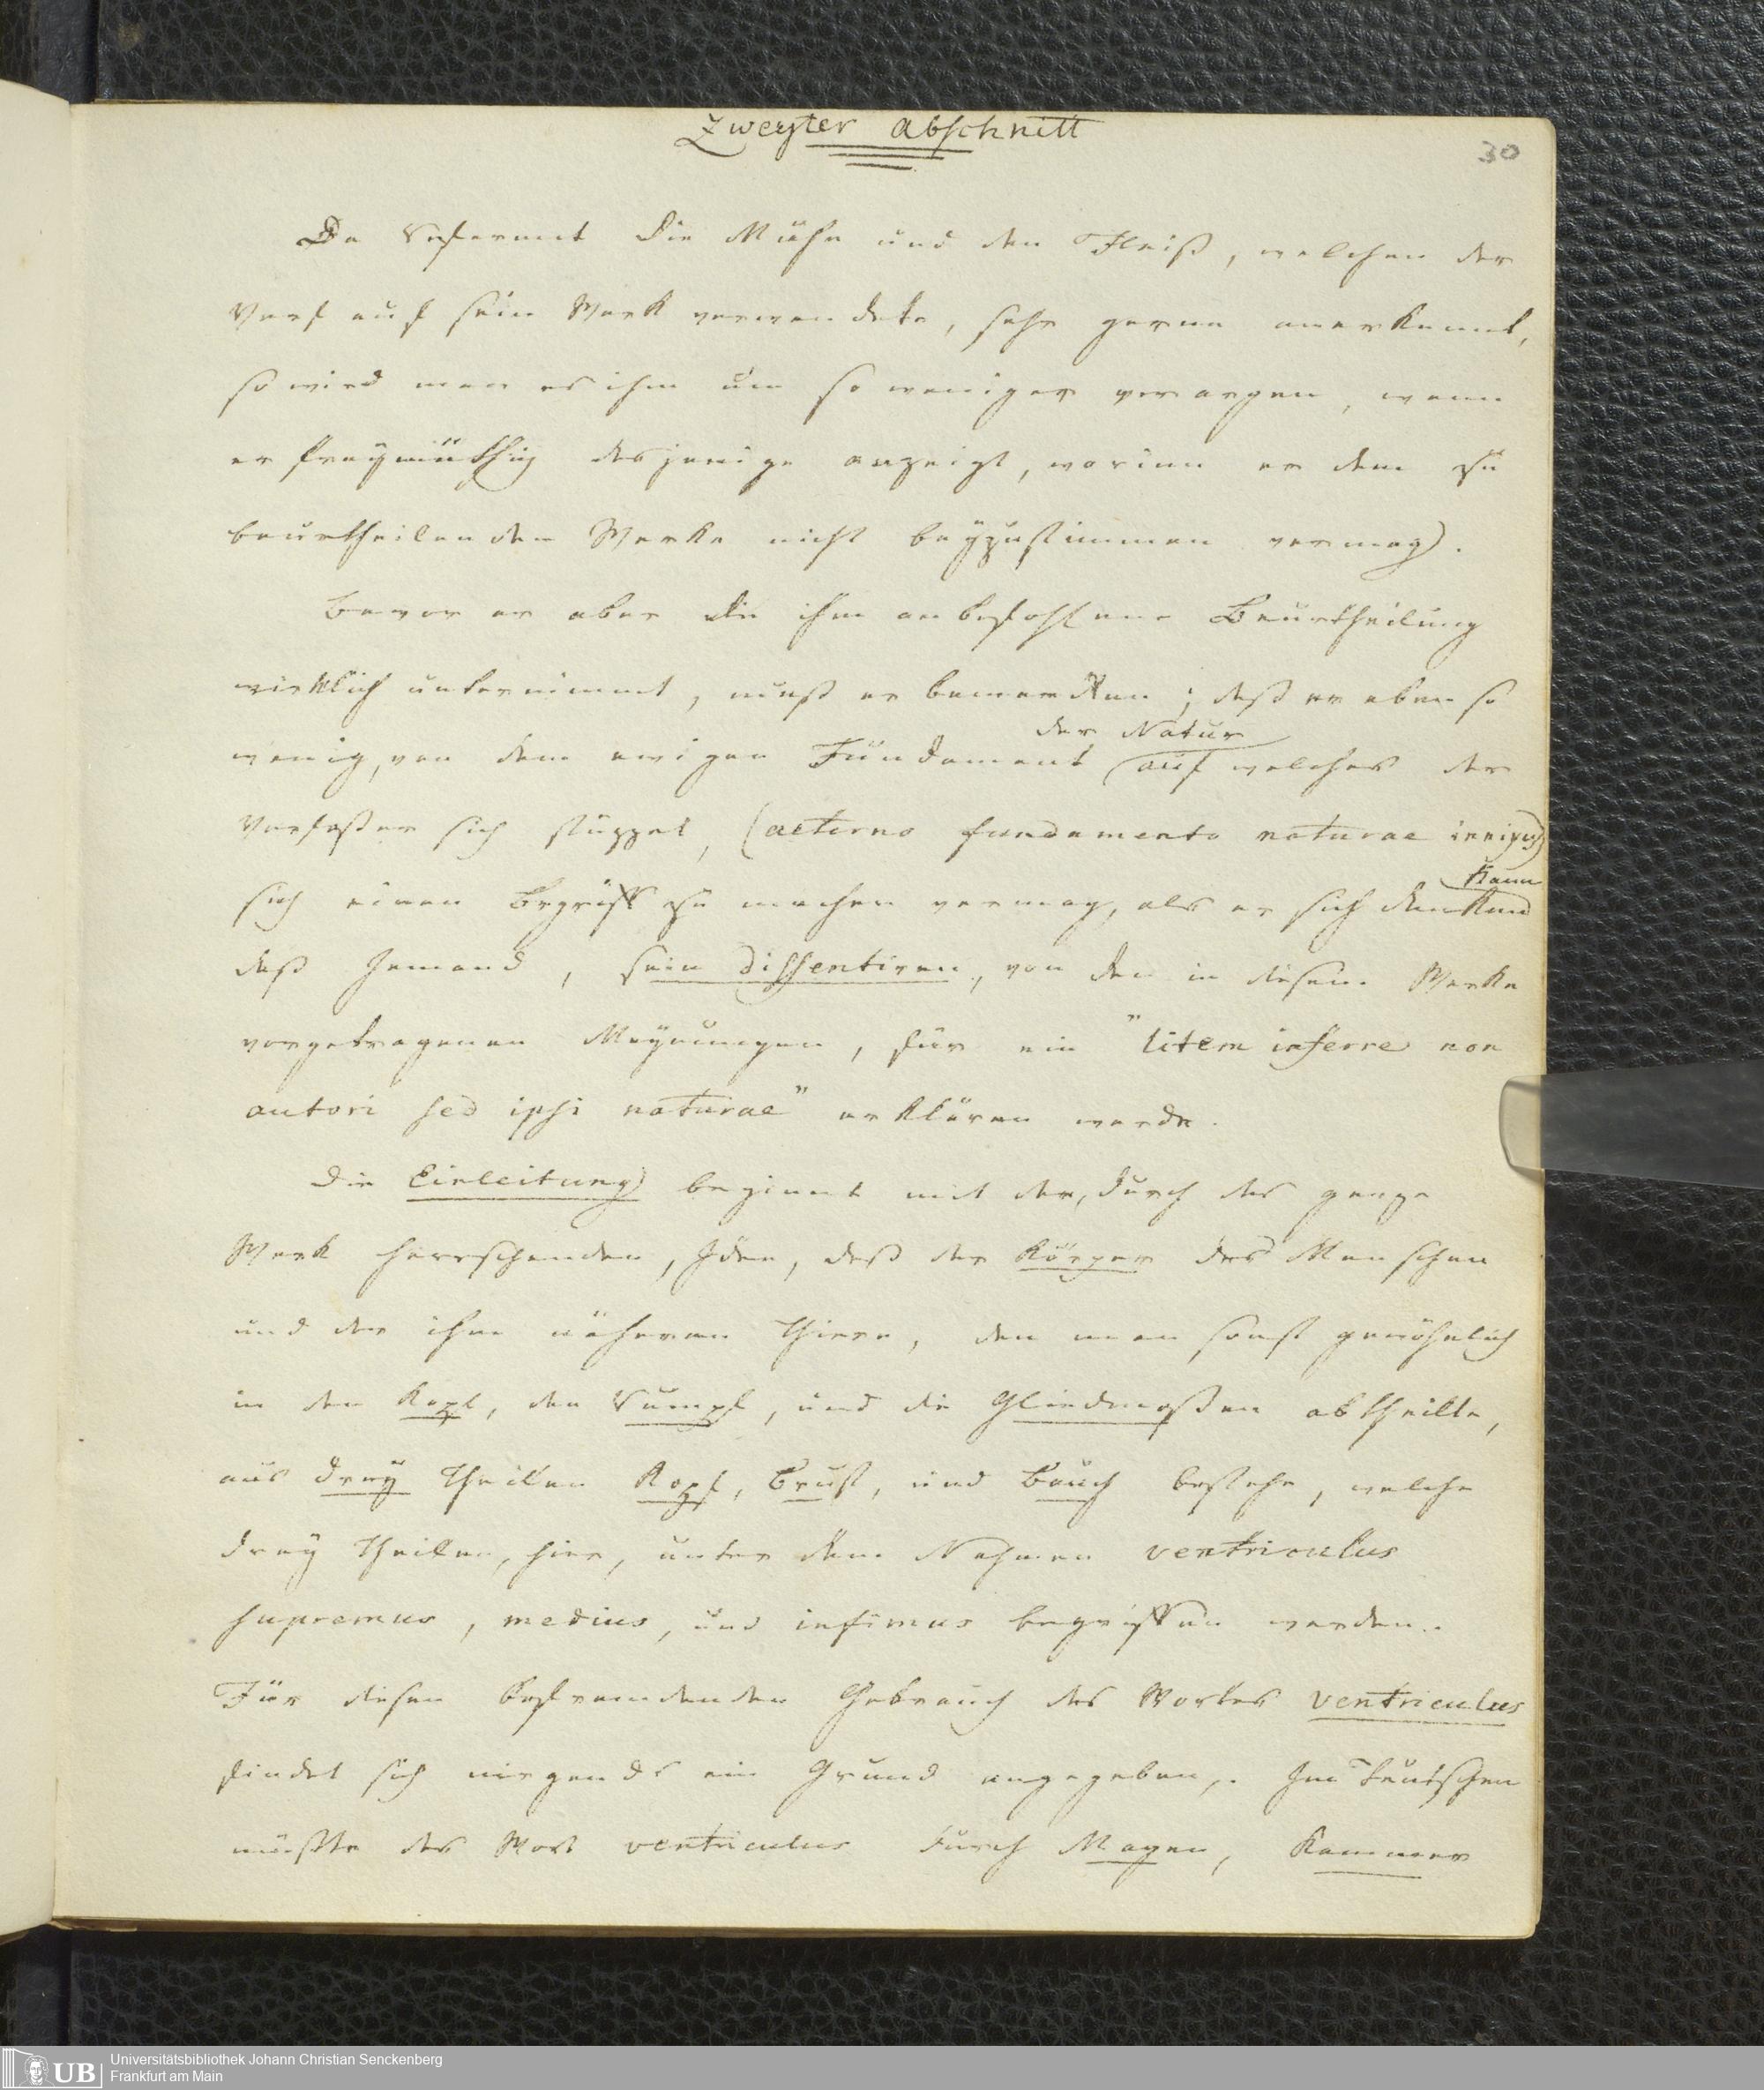 Zweyter Abschnitt
30
Da Referent die Mühe und den Fleiß, welchen der
Verf auf sein Werk verwendete, sehr gerne anerkennt,
so wird man es ihm um so weniger verargen, wenn
er freymüthig dasjenige anzeigt, worinn er dem zu
beurtheilenden Werke nicht beyzustimmen vermag.
Bevor er aber die ihm anbefohlene Beurtheilung
wirklich unternimmt, muß er bemerken; daß er eben so
der Natur
wenig, von dem ewigen Fundament auf welches der
Verfaßer sich stüzzet, (aeterno fundamento naturae innixus)
kann
sich einen Begriff zu machen vermag, als er sich denken
daß Jemand, sein dissentiren, von den in diesem Werke
vorgetragenen Meynungen, für ein "litem inferre non
autori sed ipsi naturae" erklären werde.
Die Einleitung beginnt mit der, durch das ganze
Werk herrschenden, Idee, daß der Körper des Menschen
und der ihm näheren Thiere, den man sonst gewöhnlich
in den Kopf, den Rumpf, und die Gliedmaßen abtheilte,
aus drey Theilen Kopf, Brust, und Bauch bestehe, welche
drey Theilen, hier, unter dem Nahmen ventriculus
supremus, medius, und infimus begriffen werden.
Für diesen befremdenden Gebrauch des Wortes ventriculus
findet sich nirgends ein Grund angegeben,. Im Teutschen
müßte das Wort ventriculus durch Magen, Kammer
Universitätsbibliothek Johann Christian Senckenberg
UB
Frankfurt am Main